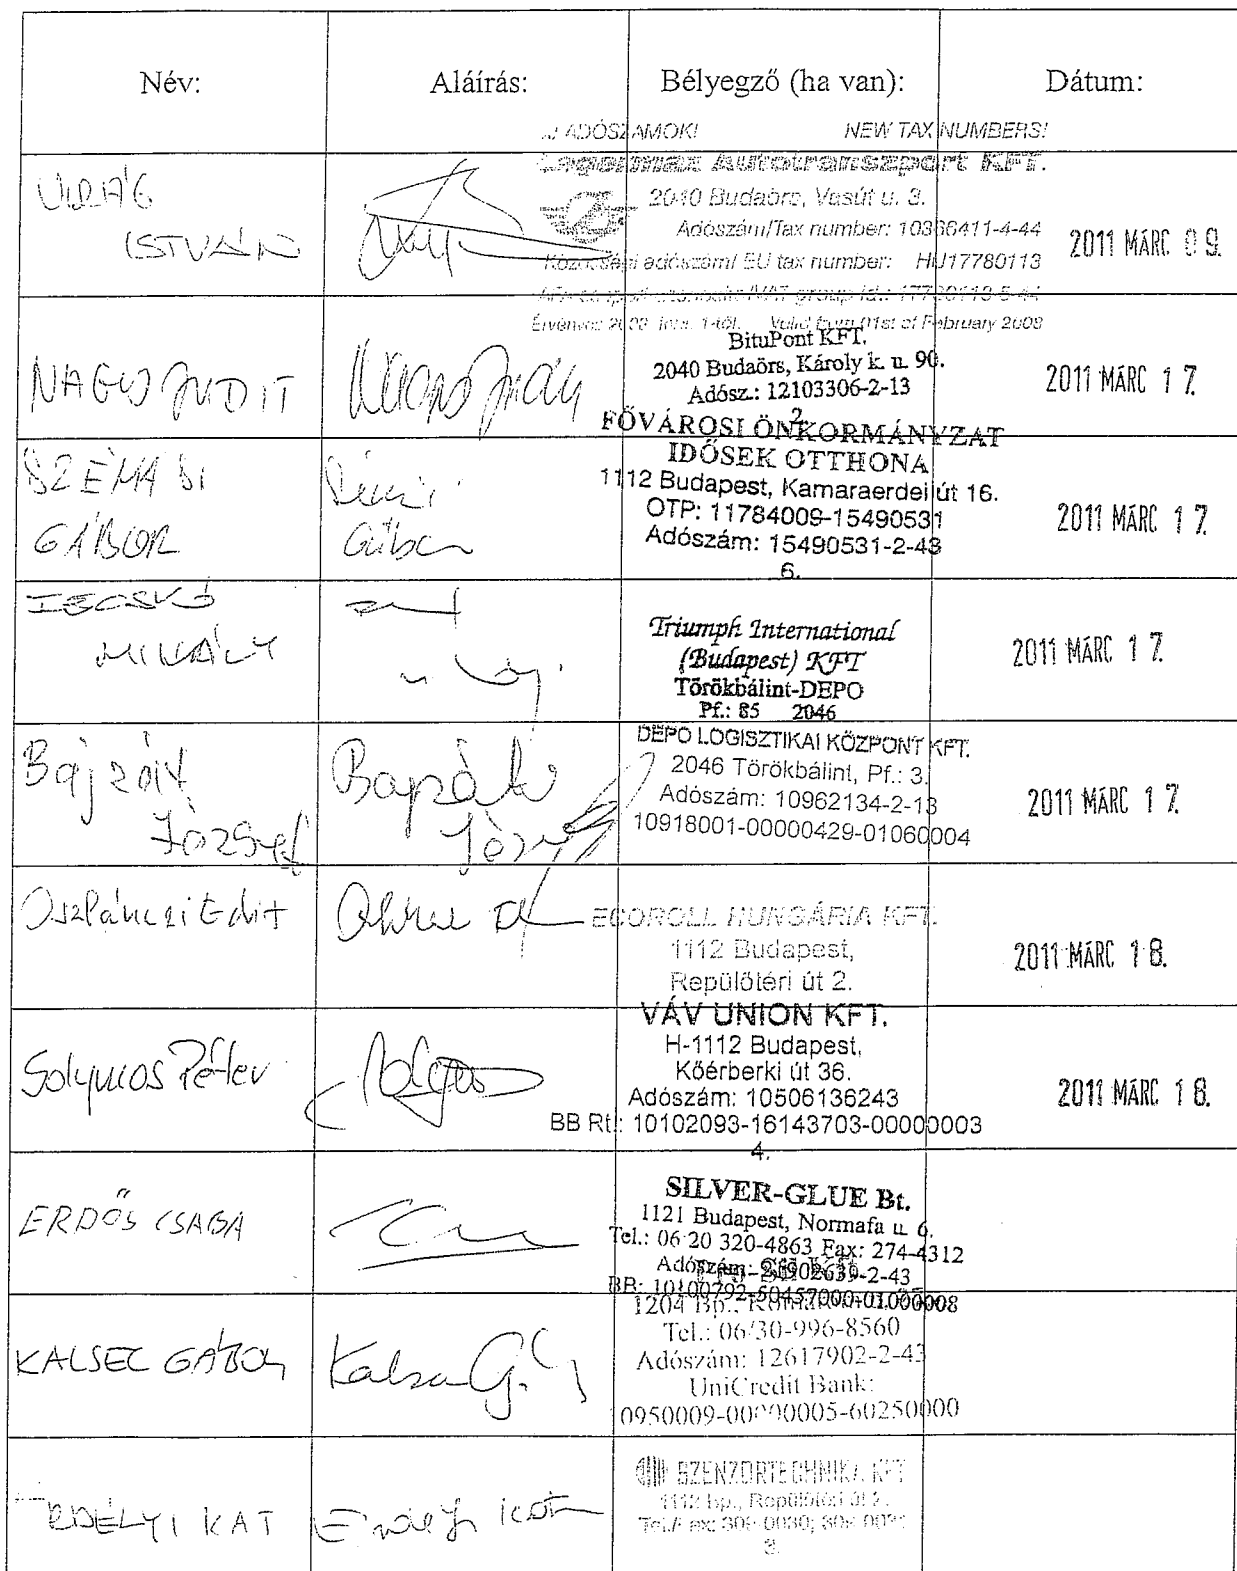 Név: Aláírás: Bélyegző (ha van): Dátum:
ADÓSZÁMOK! NEW TAX NUMBERS!
Lagermax Autotranszport KFT.
2040 Budaörs, Vasút u. 3.
ISTVÁN
Adószám/Tax number: 10366411-4-44
2011 MÁRC 09.
Közösségi adószám/ EU tax number: HU17780113
Érvényes 2008. 1-től. Valid from 01st of February 2008
NAGY JUDIT
BituPont KFT.
2040 Budaörs, Károly k. u. 90.
Adósz.: 12103306-2-13
2.
2011 MÁRC 17.
GÁBOR
Gábor
FŐVÁROSI ÖNKORMÁNYZAT
IDŐSEK OTTHONA
1112 Budapest, Kamaraerdei út 16.
OTP: 11784009-15490531
Adószám: 15490531-2-43
6.
2011 MÁRC 17.
MIHÁLY
Triumph International
(Budapest) KFT
Törökbálint-DEPO
Pf.: 85 2046
2011 MÁRC 17.
József
DEPO LOGISZTIKAI KÖZPONT KFT.
2046 Törökbálint, Pf.: 3.
Adószám: 10962134-2-13
10918001-00000429-01060004
2011 MÁRC 17.
Oszlánczi Edit
ECOROLL HUNGÁRIA KFT.
1112 Budapest,
Repülőtéri út 2.
2011 MÁRC 18.
Solymos Péter
VÁV UNION KFT.
H-1112 Budapest,
Kőérberki út 36.
Adószám: 10506136243
BB Rt.: 10102093-16143703-00000003
4.
2011 MÁRC 18.
ERDŐS CSABA
SILVER-GLUE Bt.
1121 Budapest, Normafa u. 6.
Tel.: 06 20 320-4863 Fax: 274-4312
Adószám:
BB: 10100792-50457000-01000008
KALSEC GÁBOR
Tel.: 06/30-996-8560
Adószám: 12617902-2-43
UniCredit Bank:
ERDÉLYI KAT
Erdélyi Kat
SZENZORTECHNIKA KFT
1112 bp., Repülőtéri út 2.
3.